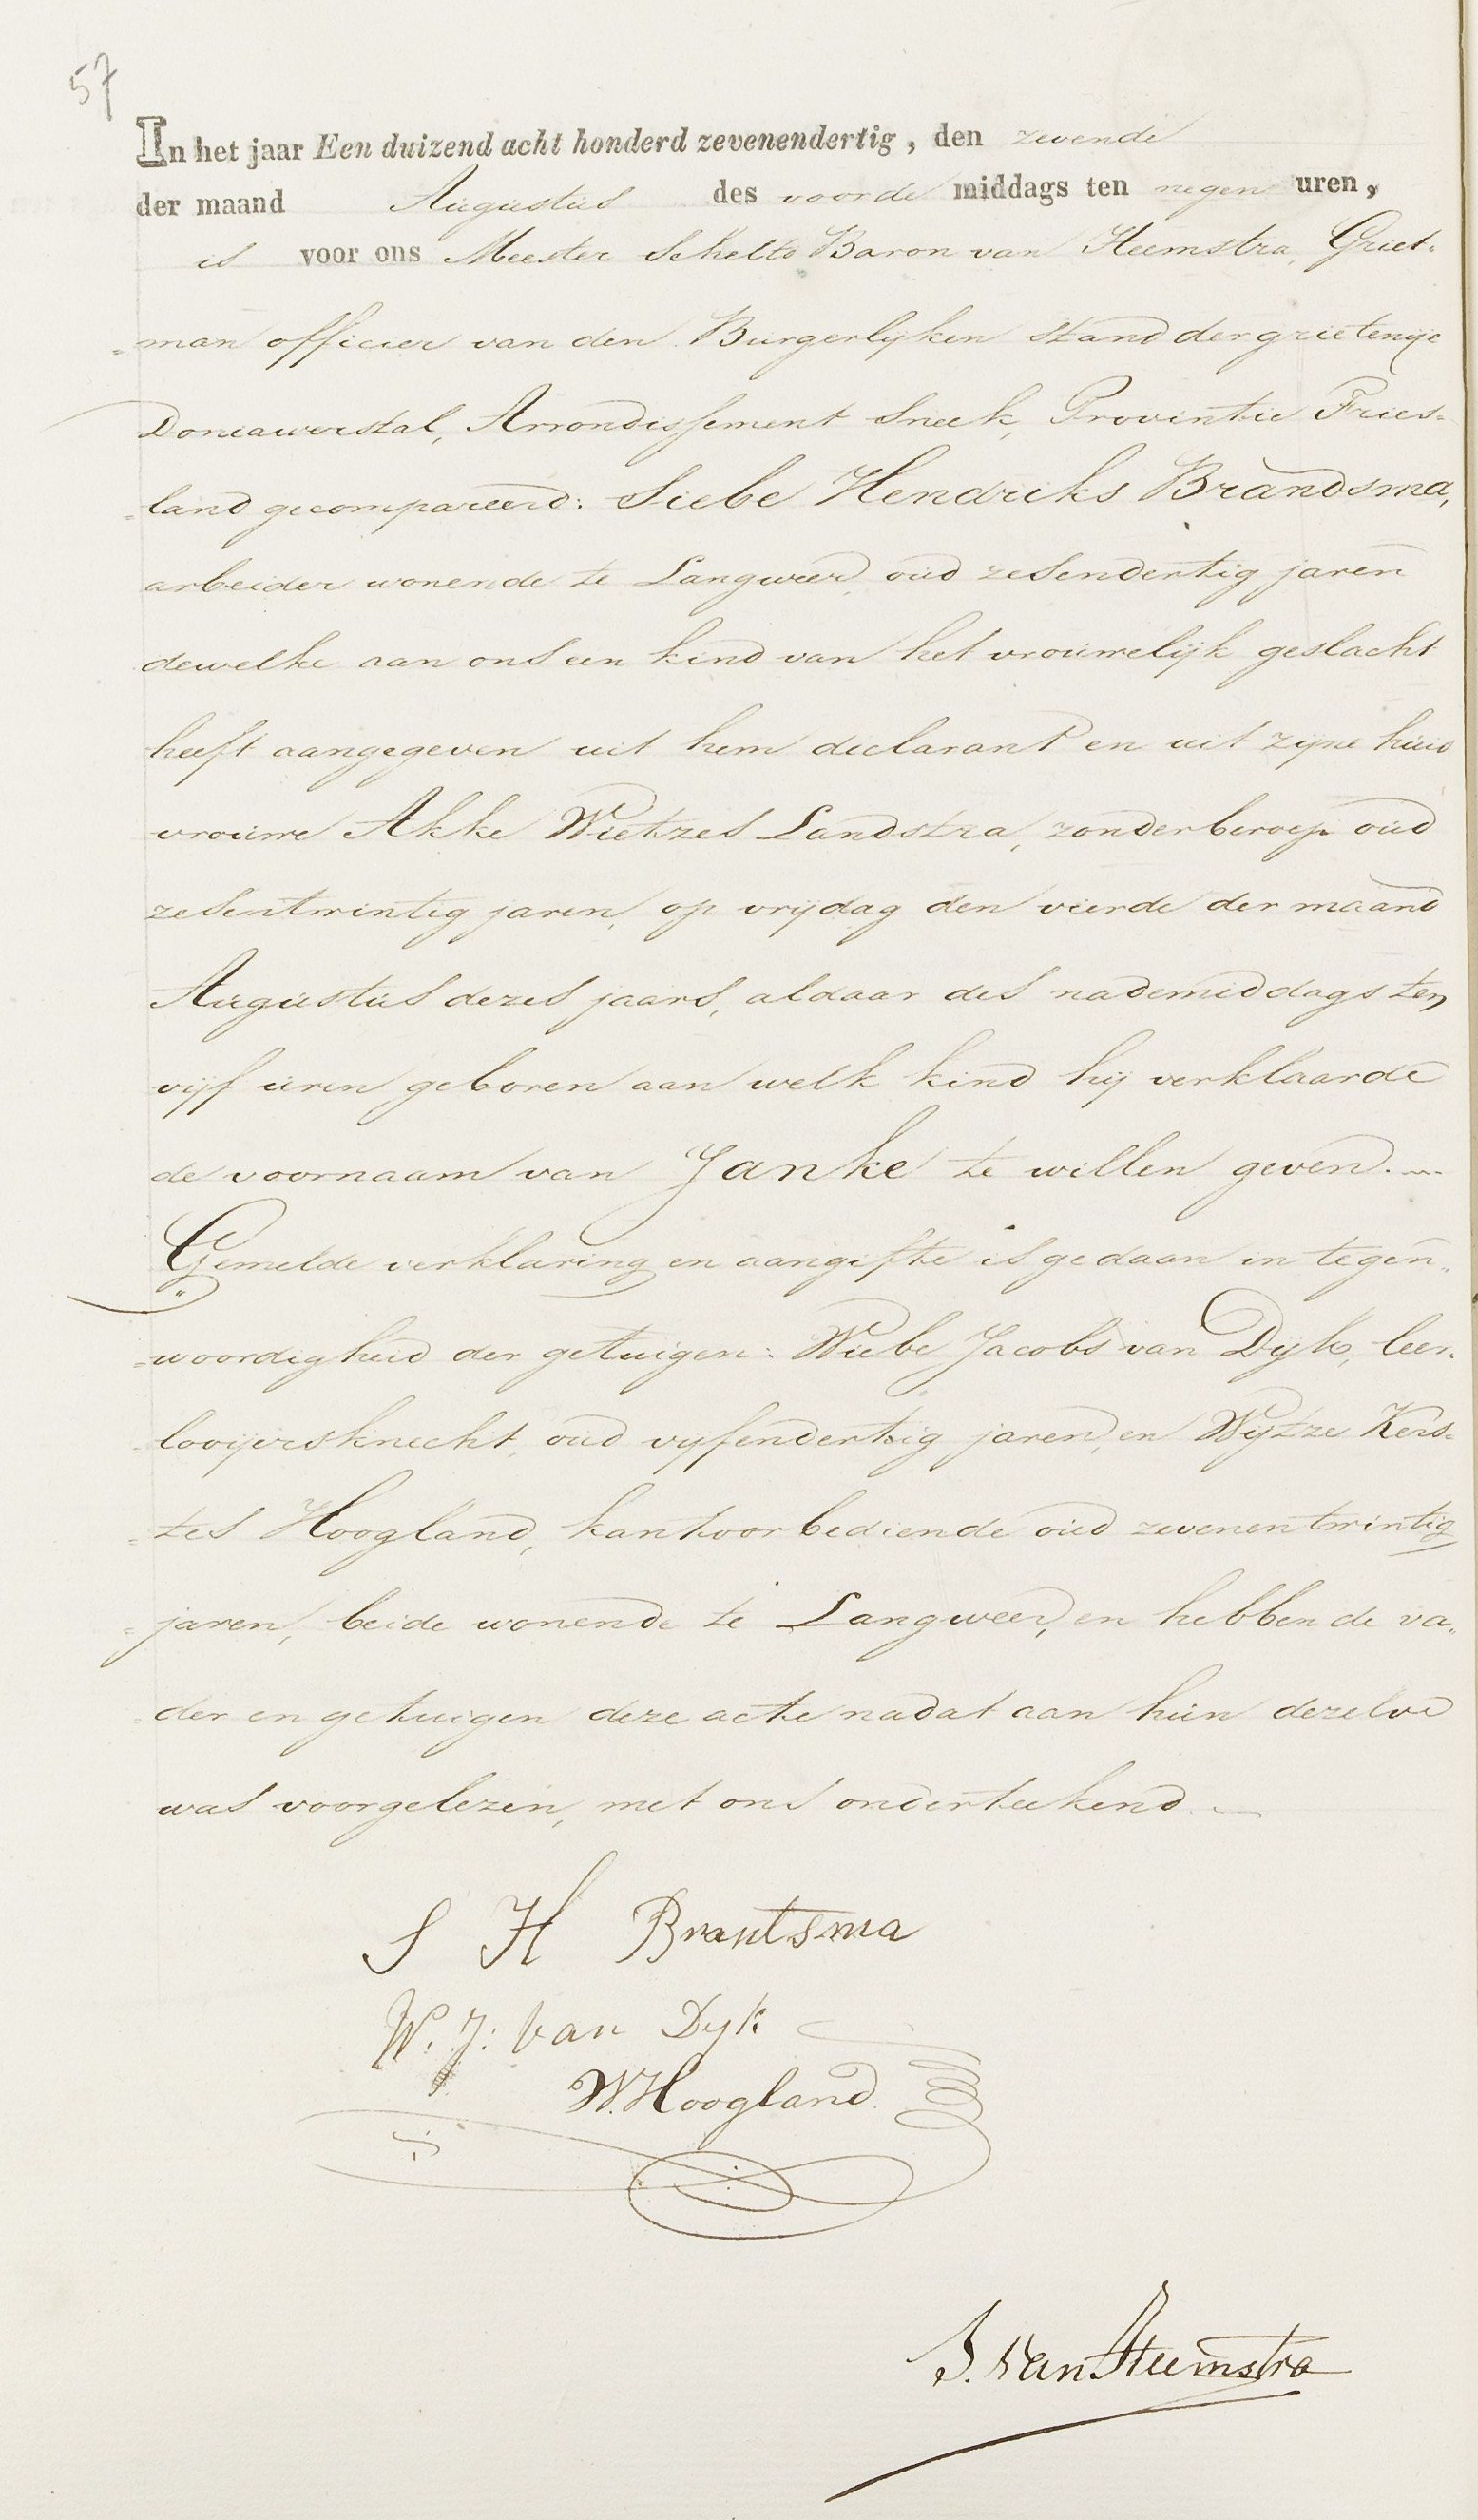 57
In het jaar Een duizend acht honderd zevenendertig, den zevende
der maand Augustus des voorde middags ten negen uren,
is voor ons Meester Schelto Baron van Heemstra, Griet-
=man officier van den Burgerlijken stand der grietenije
Doniawerstal, Arrondissement Sneek, Provintie Fries-
=land gecompareerd: Siebe Hendriks Brandsma,
arbeider wonende te Langweer, oud zesendertig jaren
dewelke aan ons een kind van het vrouwelijk geslacht
heeft aangegeven uit hem declarant en uit zijne huis
vrouwe Akke Wietzes Landstra, zonder beroep oud
zesentwintig jaren, op vrijdag den vierde der maand
Augustus dezes jaars, aldaar des nademiddags ten
vijf uren geboren aan welk kind hij verklaarde
de voornaam van Janke te willen geven.
Gemelde verklaring en aangifte is gedaan in tegen-
=woordigheid der getuigen: Wiebe Jacobs van Dijk, leer-
=looijersknecht, oud vijfendertig jaren, en Wijtze Kers-
=tes Hoogland, kantoorbediende oud zevenentwintig
=jaren, beide wonende te Langweer, en hebben de va-
der en getuigen deze acte nadat aan hun dezelve
was voorgelezen, met ons onderteekend.
S H Brantsma
W. J: van Dyk
W. Hoogland.
S. van Heemstra